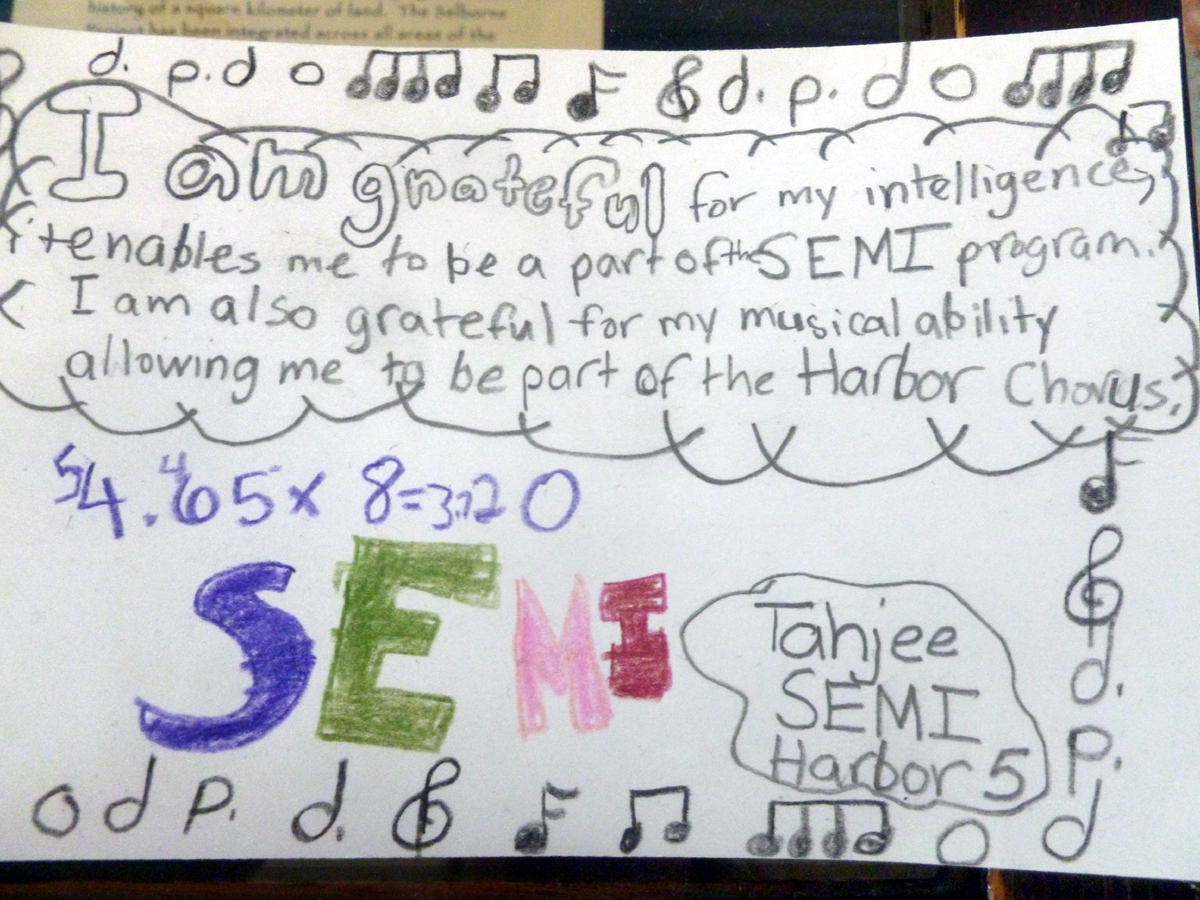 history of a square kilometer of land. The Selborne
Project has been integrated across all areas of the
I am grateful for my intelligence,
it enables me to be a part of the SEMI program.
I am also grateful for my musical ability
allowing me to be part of the Harbor Chorus.
54.465 x 8=3.120
SEMI
Tahjee
SEMI
Harbor 5